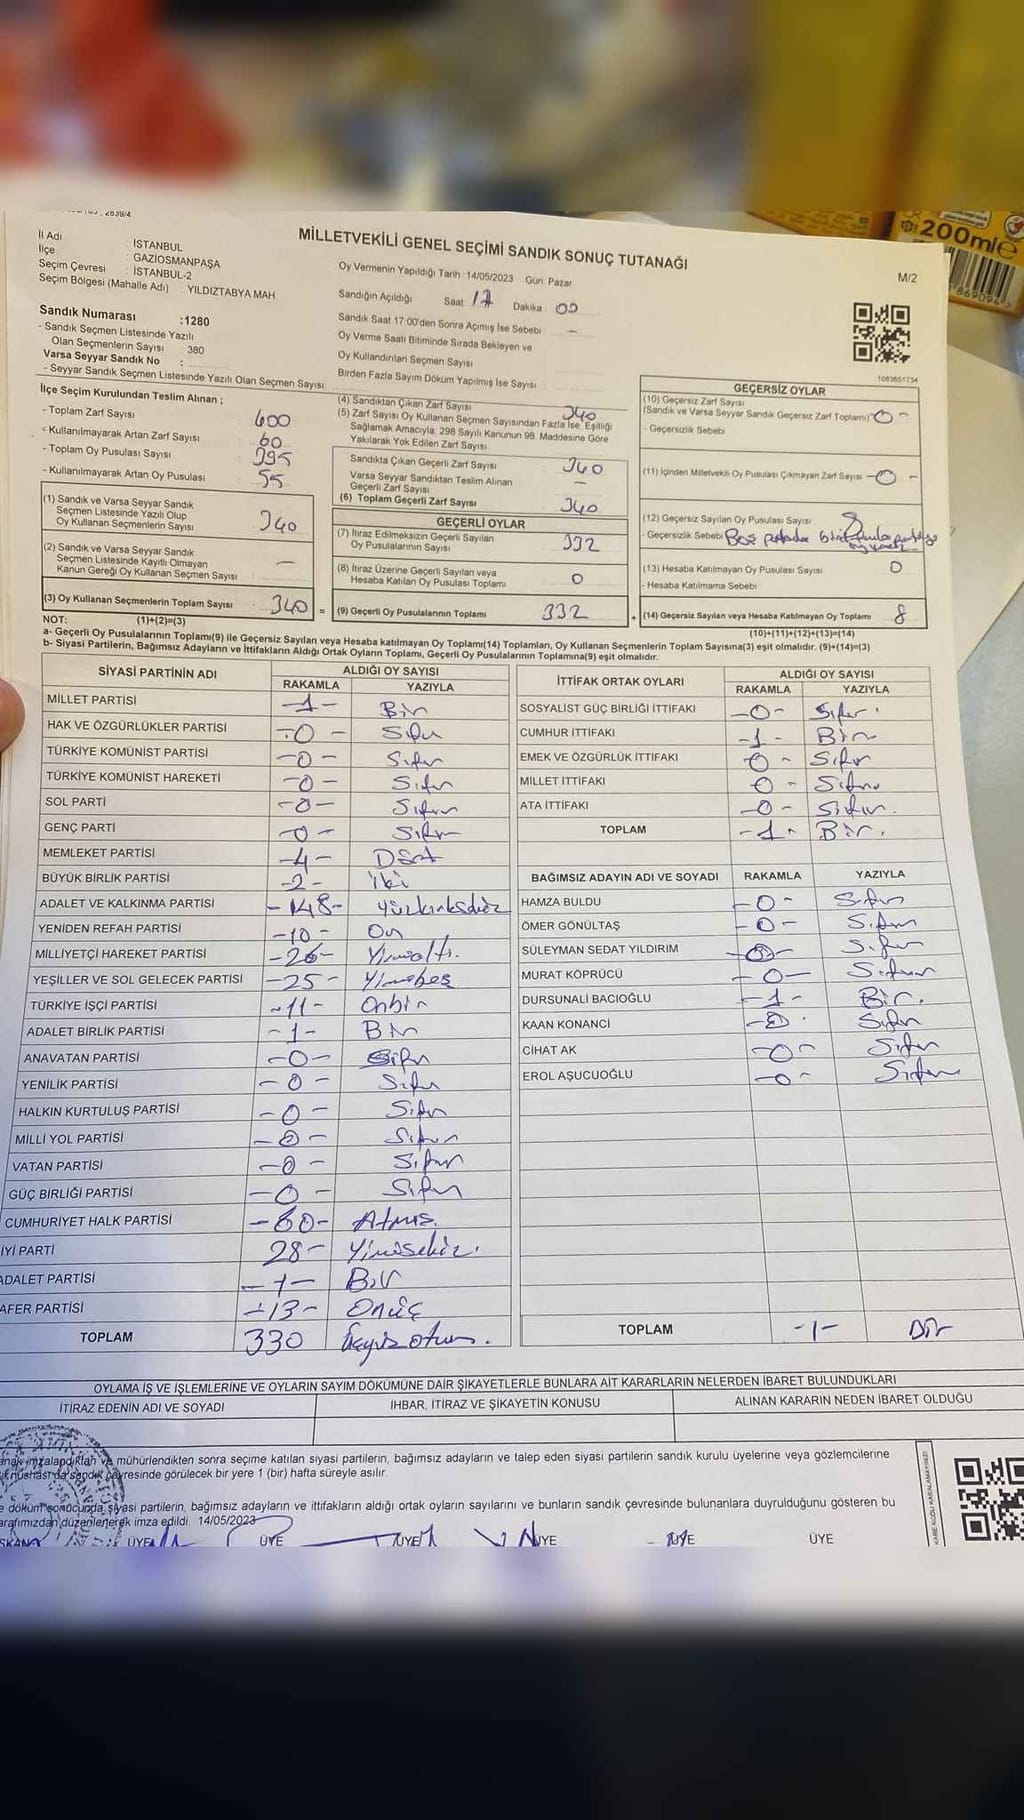 2839/4
MİLLETVEKİLİ GENEL SEÇİMİ SANDIK SONUÇ TUTANAĞI
M/2
200ml e
İl Adı : İSTANBUL
İlçe : GAZİOSMANPAŞA
Seçim Çevresi : İSTANBUL-2
Seçim Bölgesi (Mahalle Adı) : YILDIZTABYA MAH
Oy Vermenin Yapıldığı Tarih :14/05/2023 Gün: Pazar
Sandığın Açıldığı Saat: 17 Dakika : 00
Sandık Saat 17:00'den Sonra Açılmış İse Sebebi : —
Oy Verme Saati Bitiminde Sırada Bekleyen ve
Oy Kullandırılan Seçmen Sayısı
Birden Fazla Sayım Döküm Yapılmış İse Sayısı
Sandık Numarası :1280
- Sandık Seçmen Listesinde Yazılı
Olan Seçmenlerin Sayısı : 380
Varsa Seyyar Sandık No :
- Seyyar Sandık Seçmen Listesinde Yazılı Olan Seçmen Sayısı:
1083651734
İlçe Seçim Kurulundan Teslim Alınan ;
- Toplam Zarf Sayısı : 400
- Kullanılmayarak Artan Zarf Sayısı : 60
- Toplam Oy Pusulası Sayısı : 395
- Kullanılmayarak Artan Oy Pusulası : 55
(1) Sandık ve Varsa Seyyar Sandık
Seçmen Listesinde Yazılı Olup
Oy Kullanan Seçmenlerin Sayısı : 340
(2) Sandık ve Varsa Seyyar Sandık
Seçmen Listesinde Kayıtlı Olmayan
Kanun Gereği Oy Kullanan Seçmen Sayısı : —
(3) Oy Kullanan Seçmenlerin Toplam Sayısı : 340 =
(4) Sandıktan Çıkan Zarf Sayısı : 340
(5) Zarf Sayısı Oy Kullanan Seçmen Sayısından Fazla İse, Eşitliği
Sağlamak Amacıyla, 298 Sayılı Kanunun 98. Maddesine Göre
Yakılarak Yok Edilen Zarf Sayısı
Sandıkta Çıkan Geçerli Zarf Sayısı : 340
Varsa Seyyar Sandıktan Teslim Alınan
Geçerli Zarf Sayısı : —
(6) Toplam Geçerli Zarf Sayısı : 340
GEÇERLİ OYLAR
(7) İtiraz Edilmeksizin Geçerli Sayılan
Oy Pusulalarının Sayısı : 332
(8) İtiraz Üzerine Geçerli Sayılan veya
Hesaba Katılan Oy Pusulası Toplamı : 0
(9) Geçerli Oy Pusulalarının Toplamı : 332 +
GEÇERSİZ OYLAR
(10) Geçersiz Zarf Sayısı
(Sandık ve Varsa Seyyar Sandık Geçersiz Zarf Toplamı): 0 -
- Geçersizlik Sebebi :
(11) İçinden Milletvekili Oy Pusulası Çıkmayan Zarf Sayısı - 0 -
(12) Geçersiz Sayılan Oy Pusulası Sayısı : 8
- Geçersizlik Sebebi : Boş
(13) Hesaba Katılmayan Oy Pusulası Sayısı : 0
- Hesaba Katılmama Sebebi :
(14) Geçersiz Sayılan veya Hesaba Katılmayan Oy Toplamı : 8
NOT: (1)+(2)=(3)
(10)+(11)+(12)+(13)=(14)
a- Geçerli Oy Pusulalarının Toplamı(9) ile Geçersiz Sayılan veya Hesaba katılmayan Oy Toplamı(14) Toplamları, Oy Kullanan Seçmenlerin Toplam Sayısına(3) eşit olmalıdır. (9)+(14)=(3)
b- Siyasi Partilerin, Bağımsız Adayların ve İttifakların Aldığı Ortak Oyların Toplamı, Geçerli Oy Pusulalarının Toplamına(9) eşit olmalıdır.
SİYASİ PARTİNİN ADI ALDIĞI OY SAYISI
RAKAMLA YAZIYLA
MİLLET PARTİSİ -1- Bir
HAK VE ÖZGÜRLÜKLER PARTİSİ -0- Sıfır
TÜRKİYE KOMÜNİST PARTİSİ -0- Sıfır
TÜRKİYE KOMÜNİST HAREKETİ -0- Sıfır
SOL PARTİ -0- Sıfır
GENÇ PARTİ -0- Sıfır
MEMLEKET PARTİSİ -4- Dört
BÜYÜK BİRLİK PARTİSİ -2- iki
ADALET VE KALKINMA PARTİSİ -148- yüzkırksekiz
YENİDEN REFAH PARTİSİ -10- On
MİLLİYETÇİ HAREKET PARTİSİ -26- Yirmialtı.
YEŞİLLER VE SOL GELECEK PARTİSİ -25- Yirmibeş
TÜRKİYE İŞÇİ PARTİSİ -11- Onbir
ADALET BİRLİK PARTİSİ -1- Bir
ANAVATAN PARTİSİ -0- Sıfır
YENİLİK PARTİSİ -0- Sıfır
HALKIN KURTULUŞ PARTİSİ -0- Sıfır
MİLLİ YOL PARTİSİ -0- Sıfır
VATAN PARTİSİ -0- Sıfır
GÜÇ BİRLİĞİ PARTİSİ -0- Sıfır
CUMHURİYET HALK PARTİSİ -60- Atmış.
İYİ PARTİ 28- Yirmisekiz.
ADALET PARTİSİ -1- Bir
AFER PARTİSİ -13- Onüç
TOPLAM 330 üçyüzotuz.
İTTİFAK ORTAK OYLARI ALDIĞI OY SAYISI
RAKAMLA YAZIYLA
SOSYALİST GÜÇ BİRLİĞİ İTTİFAKI -0- Sıfır.
CUMHUR İTTİFAKI -1- Bir
EMEK VE ÖZGÜRLÜK İTTİFAKI -0- Sıfır
MİLLET İTTİFAKI -0- Sıfır
ATA İTTİFAKI -0- Sıfır.
TOPLAM -1- Bir.
BAĞIMSIZ ADAYIN ADI VE SOYADI RAKAMLA YAZIYLA
HAMZA BULDU -0- Sıfır
ÖMER GÖNÜLTAŞ -0- Sıfır
SÜLEYMAN SEDAT YILDIRIM -0- Sıfır
MURAT KÖPRÜCÜ -0- Sıfır
DURSUNALİ BACIOĞLU -1- Bir.
KAAN KONANCİ -0- Sıfır
CİHAT AK -0- Sıfır
EROL AŞUCUOĞLU -0- Sıfır
TOPLAM -1- Bir
OYLAMA İŞ VE İŞLEMLERİNE VE OYLARIN SAYIM DÖKÜMÜNE DAİR ŞİKAYETLERLE BUNLARA AİT KARARLARIN NELERDEN İBARET BULUNDUKLARI
İTİRAZ EDENİN ADI VE SOYADI İHBAR, İTİRAZ VE ŞİKAYETİN KONUSU ALINAN KARARIN NEDEN İBARET OLDUĞU
imzalandıktan ve mühürlendikten sonra seçime katılan siyasi partilerin, bağımsız adayların ve talep eden siyasi partilerin sandık kurulu üyelerine veya gözlemcilerine
nüshası da sandık çevresinde görülecek bir yere 1 (bir) hafta süreyle asılır.
döküm sonucunda siyasi partilerin, bağımsız adayların ve ittifakların aldığı ortak oyların sayılarını ve bunların sandık çevresinde bulunanlara duyrulduğunu gösteren bu
tarafımızdan düzenlenerek imza edildi. 14/05/2023
ÜYE ÜYE ÜYE ÜYE ÜYE ÜYE